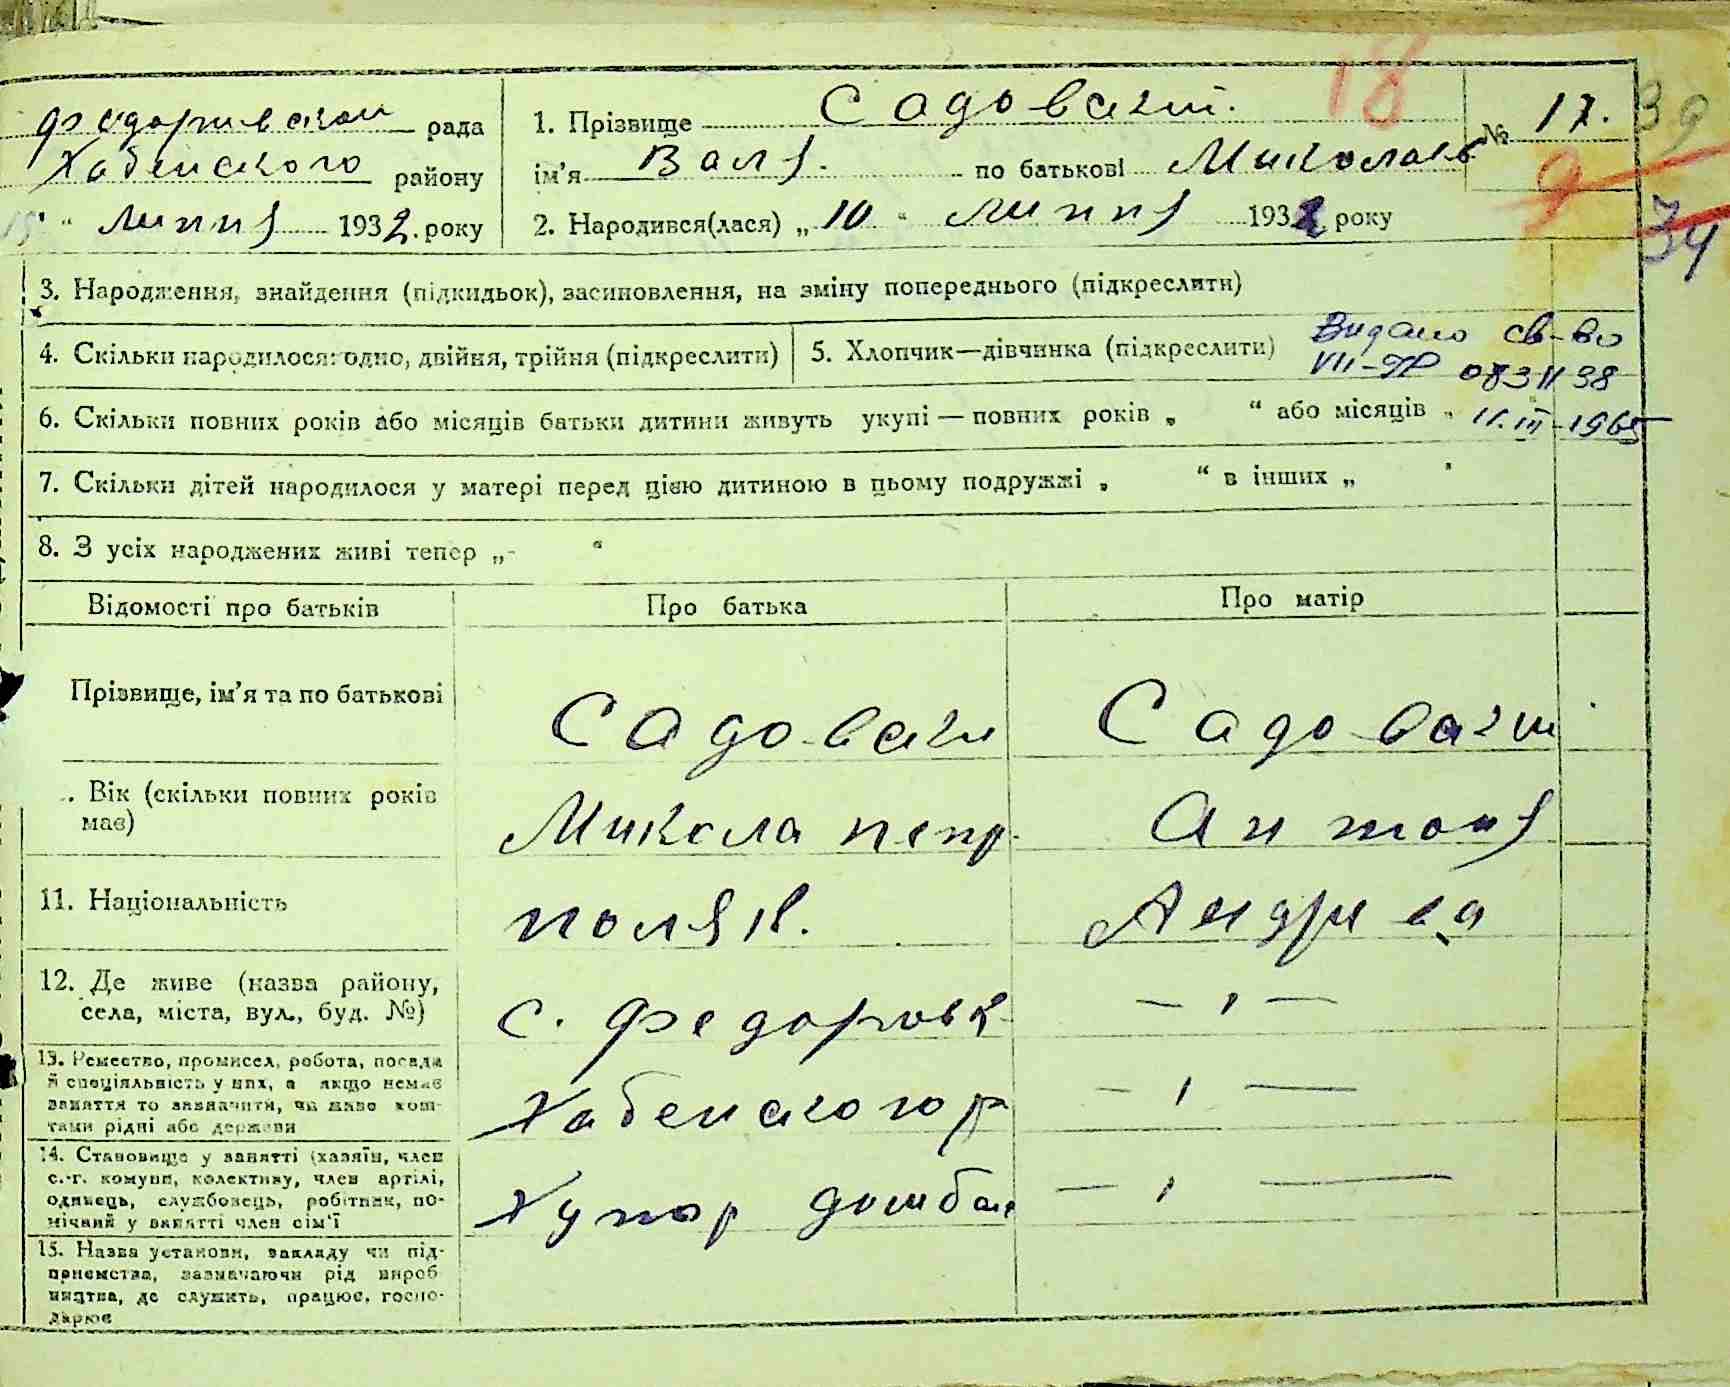 18
Федоривской рада
1. Прізвище Садовский.
№ 17.
39
Хабенского району
ім'я Валя. по батькові
9
" Липня 1932. року
2. Народився(лася) „ 10 " Липня 1932 року
34
3. Народження, знайдення (підкидьок), засиновлення, на зміну попереднього (підкреслити)
4. Скільки народилося: одно, двійня, трійня (підкреслити)
5. Хлопчик—дівчинка (підкреслити)
Видано св-во
VII-
6. Скільки повних років або місяців батьки дитини живуть укупі — повних років „ " або місяців „
11.III-1965
7. Скільки дітей народилося у матері перед цією дитиною в цьому подружжі „ " в інших „ "
8. З усіх народжених живі тепер „ "
Відомості про батьків
Про батька
Про матір
Прізвище, ім'я та по батькові
Садовски
Садовски
Вік (скільки повних років
має)
Микола петр.
Антоня
11. Національність
поляк.
Андриев
12. Де живе (назва району,
села, міста, вул., буд. №)
с. Федоровк
— " —
13. Ремество, промисел, робота, посада
й спеціяльність у них, а якщо немає
заняття то зазначити, чи живе кош-
тами рідні або держави
Хабенского р
— " —
14. Становище у занятті (хазяїн, член
с.-г. комуни, колективу, член артілі,
одинець, службовець, робітник, по-
мічний у занятті член сім'ї
Хутор
— " —
15. Назва установи, закладу чи під-
приємства, зазначаючи рід вироб
ництва, де служить, працює, госпо-
дарює